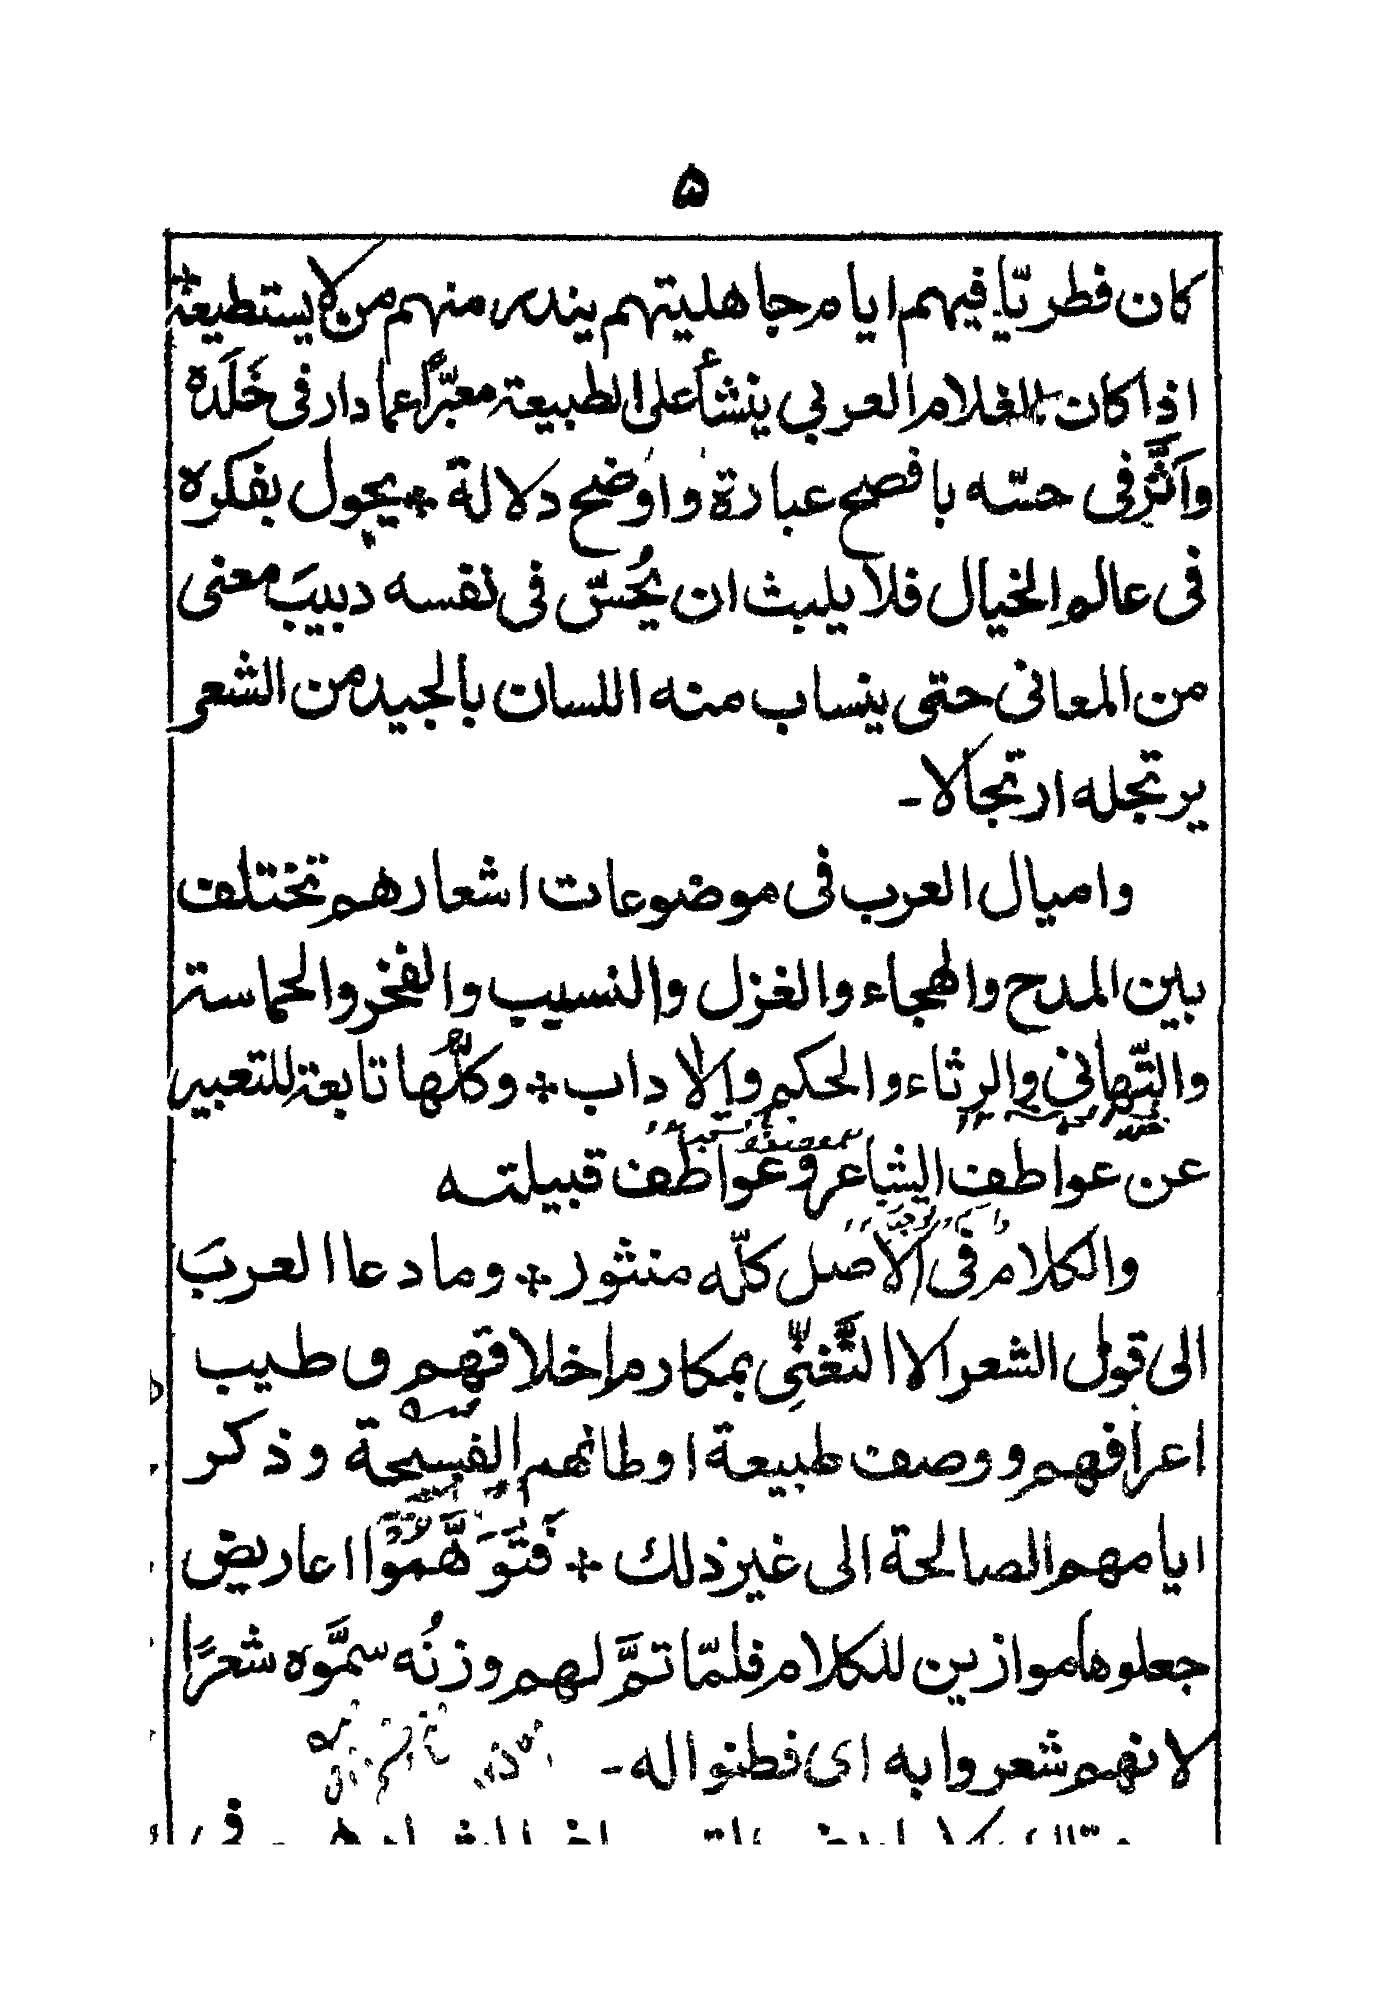 ۵
كان فطريّا فيهم ايام جاهليتهم يندر منهم من لا يستطيعه
اذا كان الغلام العربي ينشأ على الطبيعة معبّرًا عما دار فى خَلَدة
وأَثَّر فى حسّه بافصح عبارة واوضح دلالة ÷ يجول بفكره
فى عالم الخيال فلا يلبث ان يُحسّ فى نفسه دبيبَ معنى
من المعانى حتى ينساب منه اللسان بالجيد من الشعر
يرتجله ارتجالا -
واميال العرب فى موضوعات اشعارهم تختلف
بين المدح والهجاء والغزل والنسيب والفخر والحماسة
والتّهانى والرثاء والحكم والاداب ÷ وكلُّها تابعة للتعبير
عن عواطف الشاعر وعواطف قبيلته
والكلام فى الاصل كلّه منثور ÷ وما دعا العربَ
الى قول الشعر الا التَّغنِّى بمكارم اخلاقهم و طيب
اعراقهم ووصف طبيعة اوطانهم الفسيحة وذكر
ايامهم الصالحة الى غير ذلك ÷ فَتَوَهَّمُوا اعاريض
جعلوها موازين للكلام فلمّا تمَّ لهم وزنُه سمَّوه شعرًا
لانهم شعروا به اى فطنوا له -